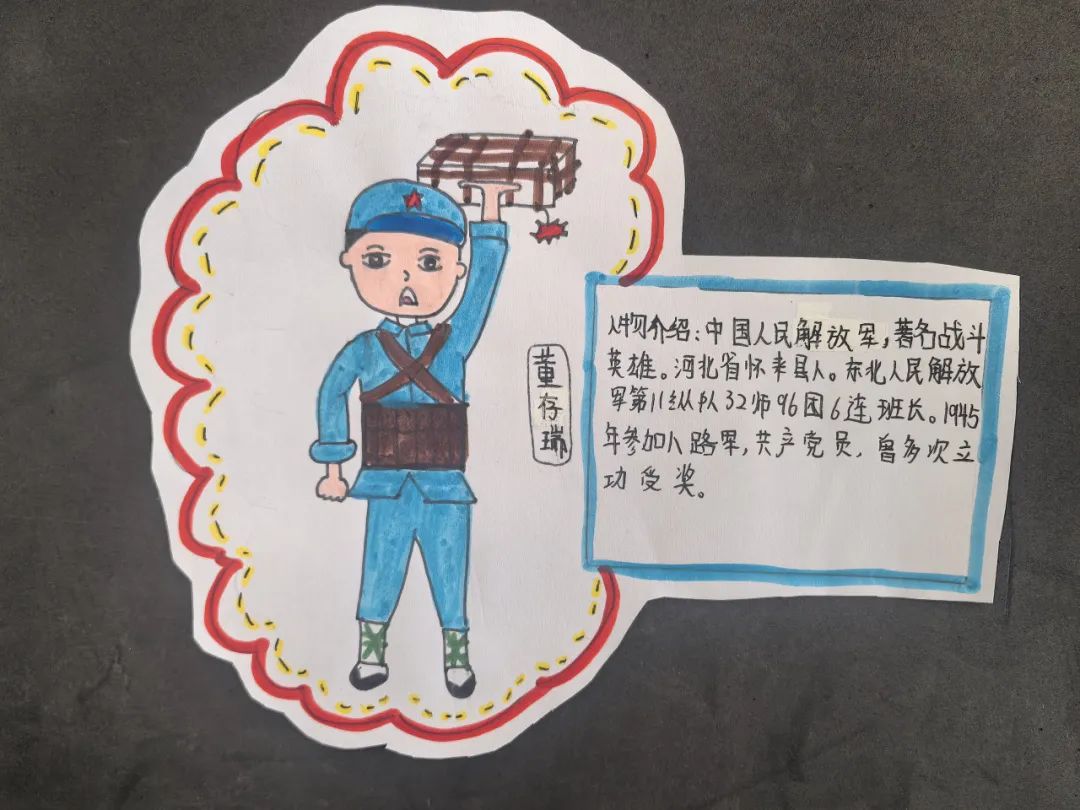 董存瑞
人物介绍：中国人民解放军，著名战斗
英雄。河北省怀来县人。东北人民解放
军第11纵队32师96团6连班长。1945
年参加八路军，共产党员，曾多次立
功受奖。